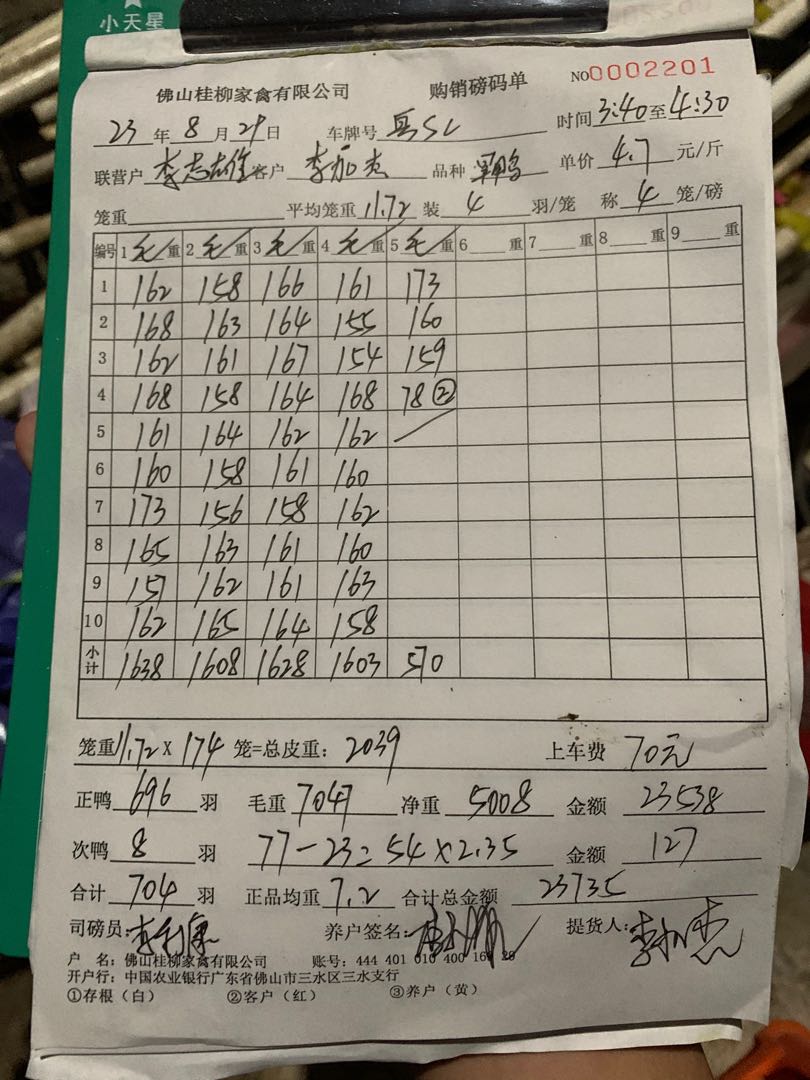 小天星
佛山桂柳家禽有限公司 购销磅码单 NO0002201
23年8月29日 车牌号 时间3:40至4:30
联营户李志雄客户李加杰 品种 单价4.7元/斤
笼重 平均笼重11.72装4羽/笼 称4笼/磅
编号 1毛重 2毛重 3毛重 4毛重 5毛重 6 重 7 重 8 重 9 重
1 162 158 166 161 173
2 168 163 164 155 160
3 162 161 167 154 159
4 168 158 164 168 78②
5 161 164 162 162
6 160 158 161 160
7 173 156 158 162
8 165 163 161 160
9 157 162 161 163
10 162 165 164 158
小计 1638 1608 1628 1603 570
笼重11.72×174笼=总皮重:2039 上车费70元
正鸭696羽 毛重7047净重5008金额23538
次鸭8羽 77-23=54×2.35 金额127
合计704羽 正品均重7.2合计总金额23735
司磅员: 养户签名: 提货人:李加杰
户 名:佛山桂柳家禽有限公司 账号:444 401 010 400 16
开户行:中国农业银行广东省佛山市三水区三水支行
①存根(白) ②客户(红) ③养户(黄)